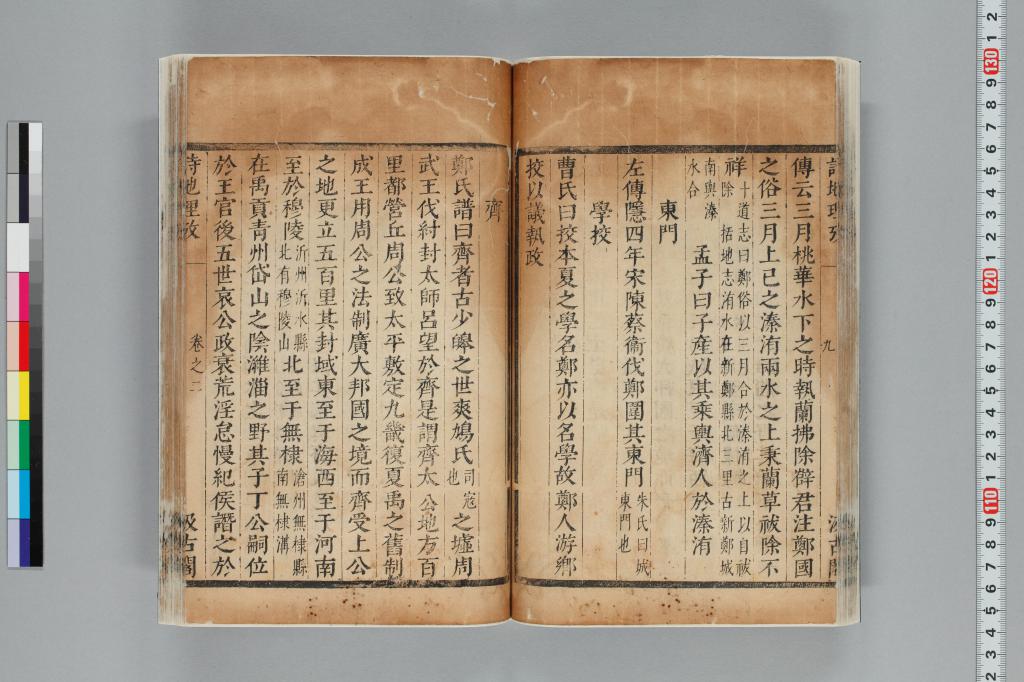 詩地理攷
九
汲古閣
傳云三月桃華水下之時執蘭拂除韓君注鄭國
之俗三月上巳之溱洧兩水之上秉蘭草祓除不
祥十道志曰鄭俗以三月合於溱洧之上以自祓
除括地志洧水在新鄭縣北三里古新鄭城
南與溱
水合
孟子曰子産以其乘輿濟人於溱洧
東門
左傳隱四年宋陳蔡衞伐鄭圍其東門朱氏曰城
東門也
學校
曹氏曰挍本夏之學名鄭亦以名學故鄭人游鄉
挍以議執政
齊
鄭氏譜曰齊者古少皞之世爽鳩氏司宼
也之墟周
武王伐紂封太師呂望於齊是謂齊太公地方百
里都營丘周公致太平敷定九畿復夏禹之舊制
成王用周公之法制廣大邦國之境而齊受上公
之地更立五百里其封域東至于海西至于河南
至於穆陵沂州沂水縣
北有穆陵山北至于無棣滄州無棣縣
南無棣溝
在禹貢靑州岱山之陰濰淄之野其子丁公嗣位
於王官後五世哀公政衰荒淫怠慢紀侯譖之於
詩地理攷
卷之二
汲古閣